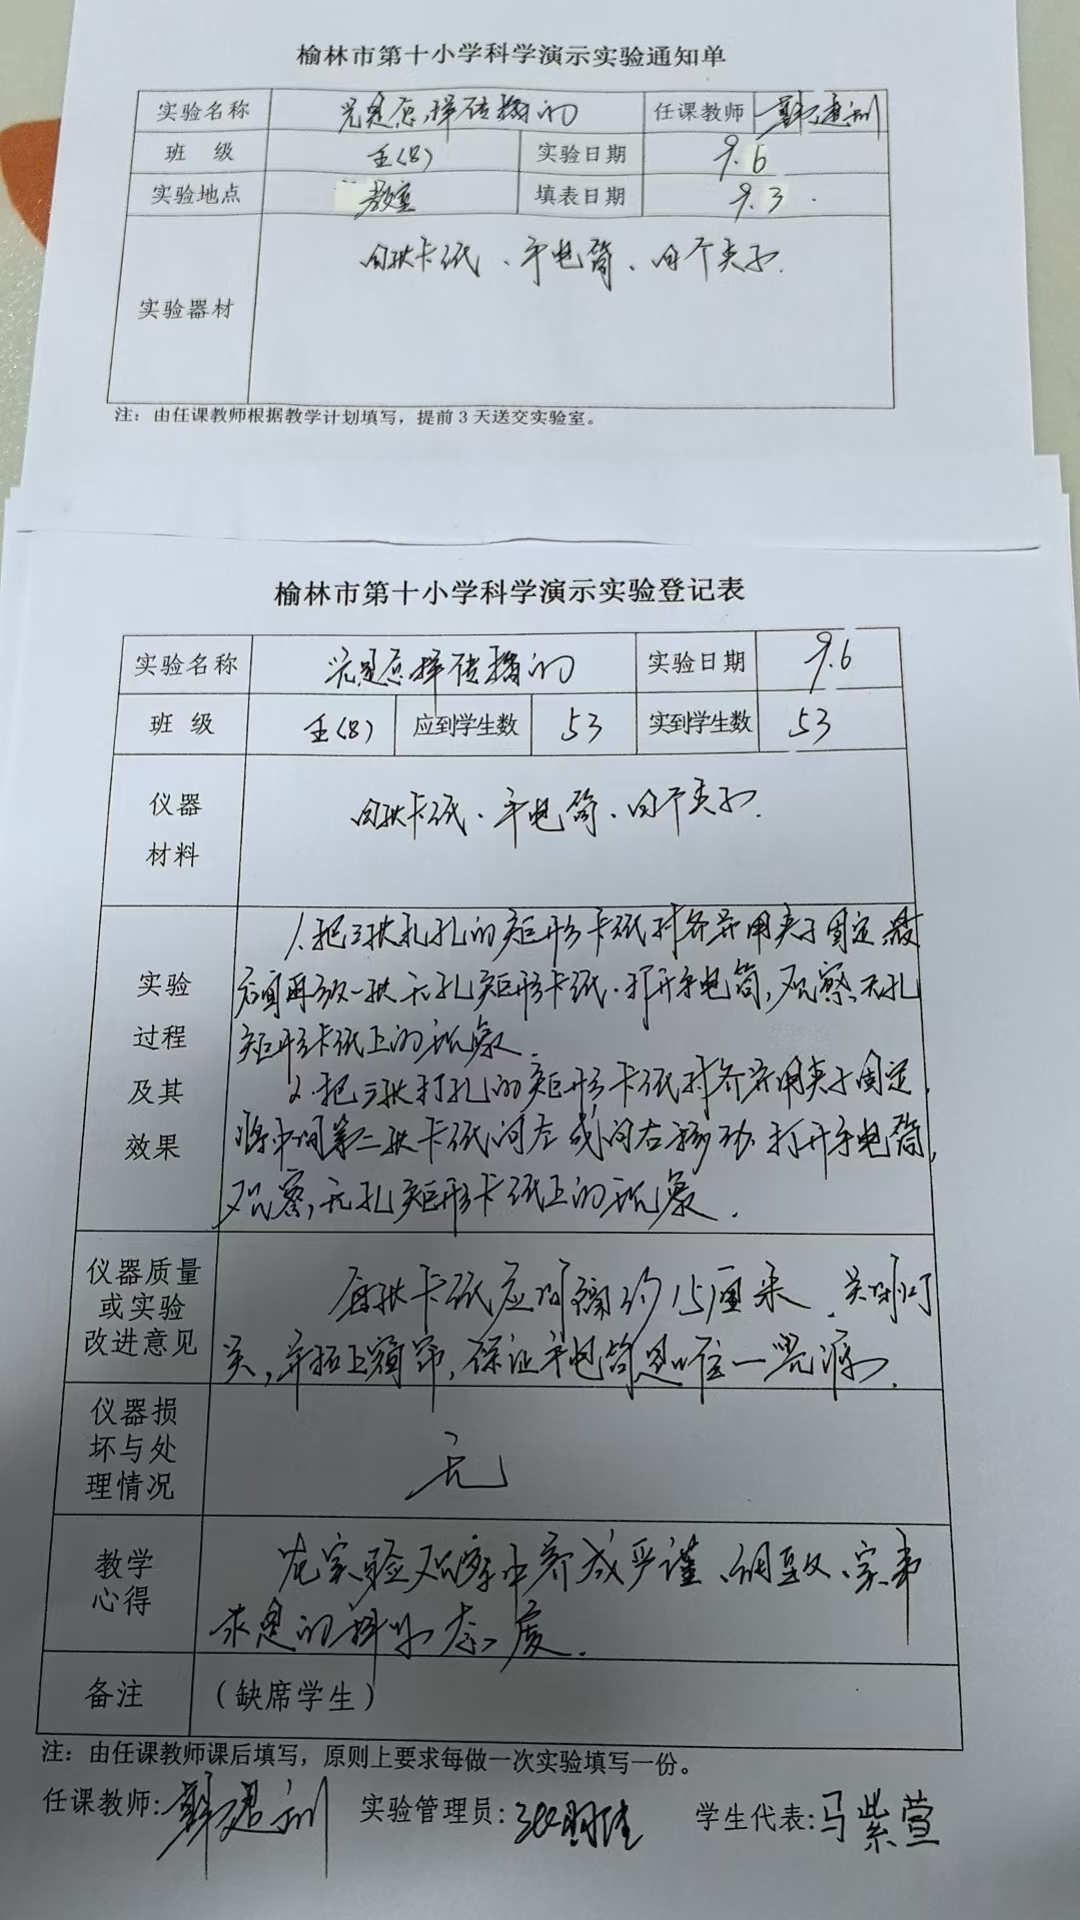 榆林市第十小学科学演示实验通知单
实验名称 光是怎样传播的 任课教师
班 级 五(8) 实验日期 9.6
实验地点 教室 填表日期 9.3
实验器材 四块卡纸、手电筒、四个夹子.
注：由任课教师根据教学计划填写，提前3天送交实验室。
榆林市第十小学科学演示实验登记表
实验名称 光是怎样传播的 实验日期 9.6
班 级 五(8) 应到学生数 53 实到学生数 53
仪器材料 四块卡纸、手电筒、四个夹子.
实验过程及其效果
1.把三块扎孔的矩形卡纸对齐并用夹子固定,最
后面再放一块无孔矩形卡纸.打开手电筒,观察无孔
矩形卡纸上的现象.
2.把三块打孔的矩形卡纸对齐并用夹子固定,
将中间第二块卡纸向左或向右移动.打开手电筒,
观察,无孔矩形卡纸上的现象.
仪器质量或实验改进意见
每块卡纸应间隔约15厘米.关闭灯
关,并拉上窗帘,保证手电筒是唯一光源.
仪器损坏与处理情况 无
教学心得
在实验观察中养成严谨、细致、实事
求是的科学态度.
备注 （缺席学生）
注：由任课教师课后填写，原则上要求每做一次实验填写一份。
任课教师: 实验管理员: 学生代表:马紫萱